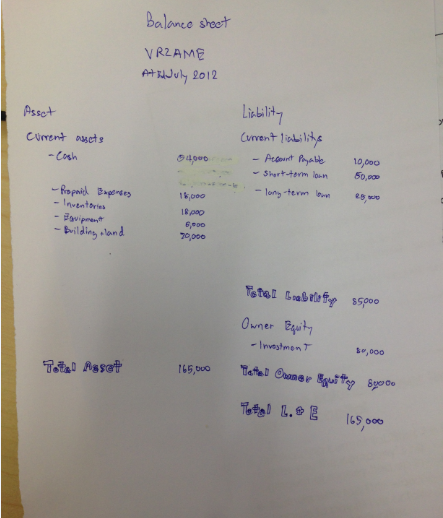 Balance sheet
VR2AME
July 2012
Asset
Current assets
- Cash 54,000
- Prepaid Expenses 15,000
- Inventories 18,000
- Equipment
- Building + land 70,000
Total Asset 165,000
Liability
Current liabilitys
- Account Payable 10,000
- Short-term loan 50,000
- long-term loan 25,000
Total Liability 85,000
Owner Equity
- Investment 80,000
Total Owner Equity 80,000
Total L + E 165,000